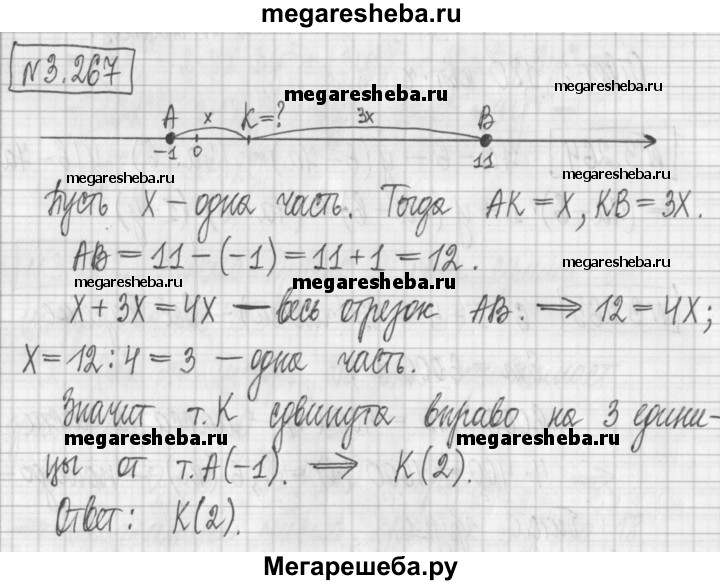 megaresheba.ru
№3.267
A x K=? 3x B
megaresheba.ru
-1 0 11
megaresheba.ru
megaresheba.ru
Пусть X – одна часть. Тогда AK = X, KB = 3X.
AB = 11 – (-1) = 11 + 1 = 12.
megaresheba.ru
megaresheba.ru
X + 3X = 4X – весь отрезок AB. ⟹ 12 = 4X;
X = 12 : 4 = 3 – одна часть.
Значит т. K сдвинута вправо на 3 едини-
megaresheba.ru
megaresheba.ru
цы от т. A(-1). ⟹ K(2).
Ответ: K(2).
Мегарешеба.ру